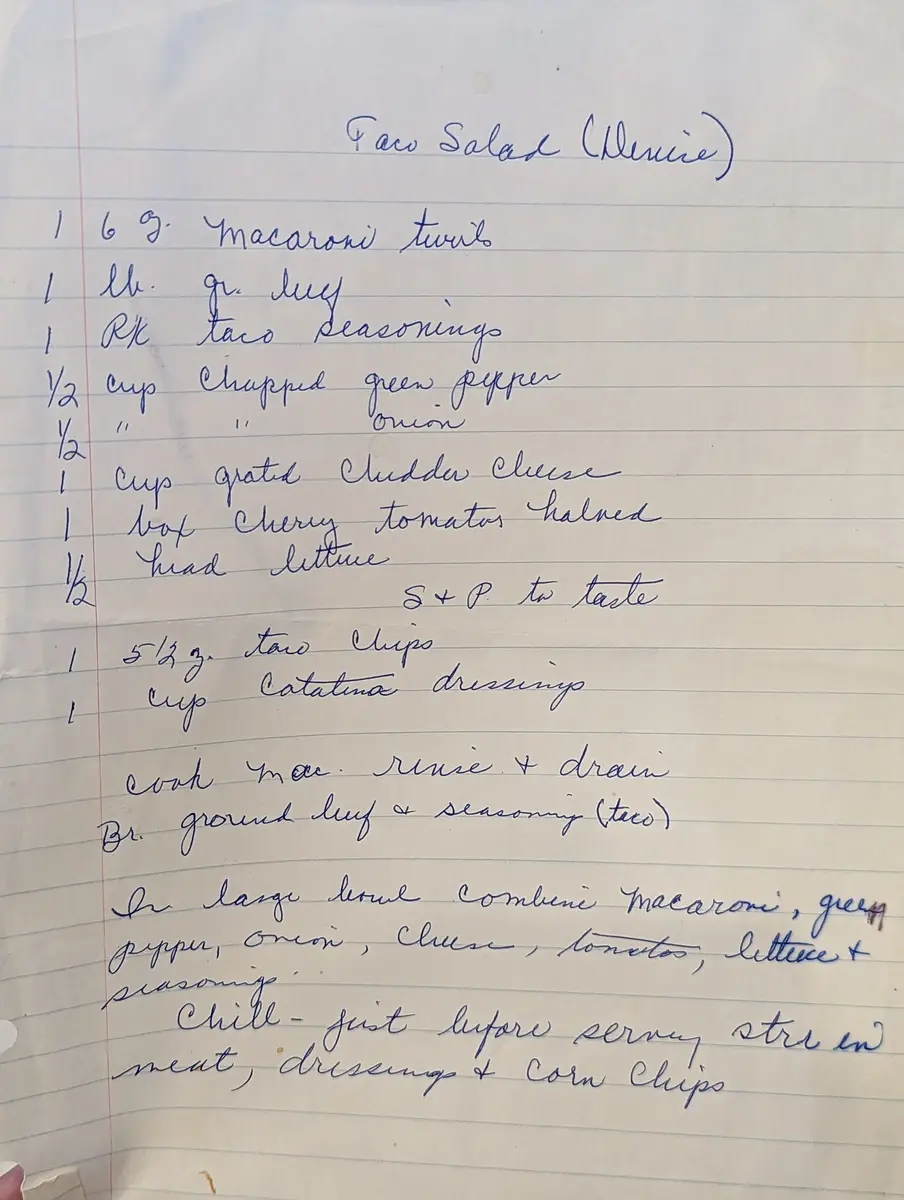 Taco Salad (Denise)
1 6 oz. Macaroni twirls
1 lb. gr. beef
1 PK taco seasonings
1/2 cup Chopped green pepper
1/2 " " onion
1 cup grated Chedder Cheese
1 box Cherry tomatos halved
1/2 head lettuce
S + P. to taste
1 5 1/2 oz. taco Chips
1 cup Catalina dressings
Cook Mac. rinse + drain
Br. ground beef & seasoning (taco)
In large bowl combine Macaroni, green
pepper, onion, Cheese, tomatos, lettuce +
seasonings.
Chill - just before serving stir in
meat, dressings + Corn Chips